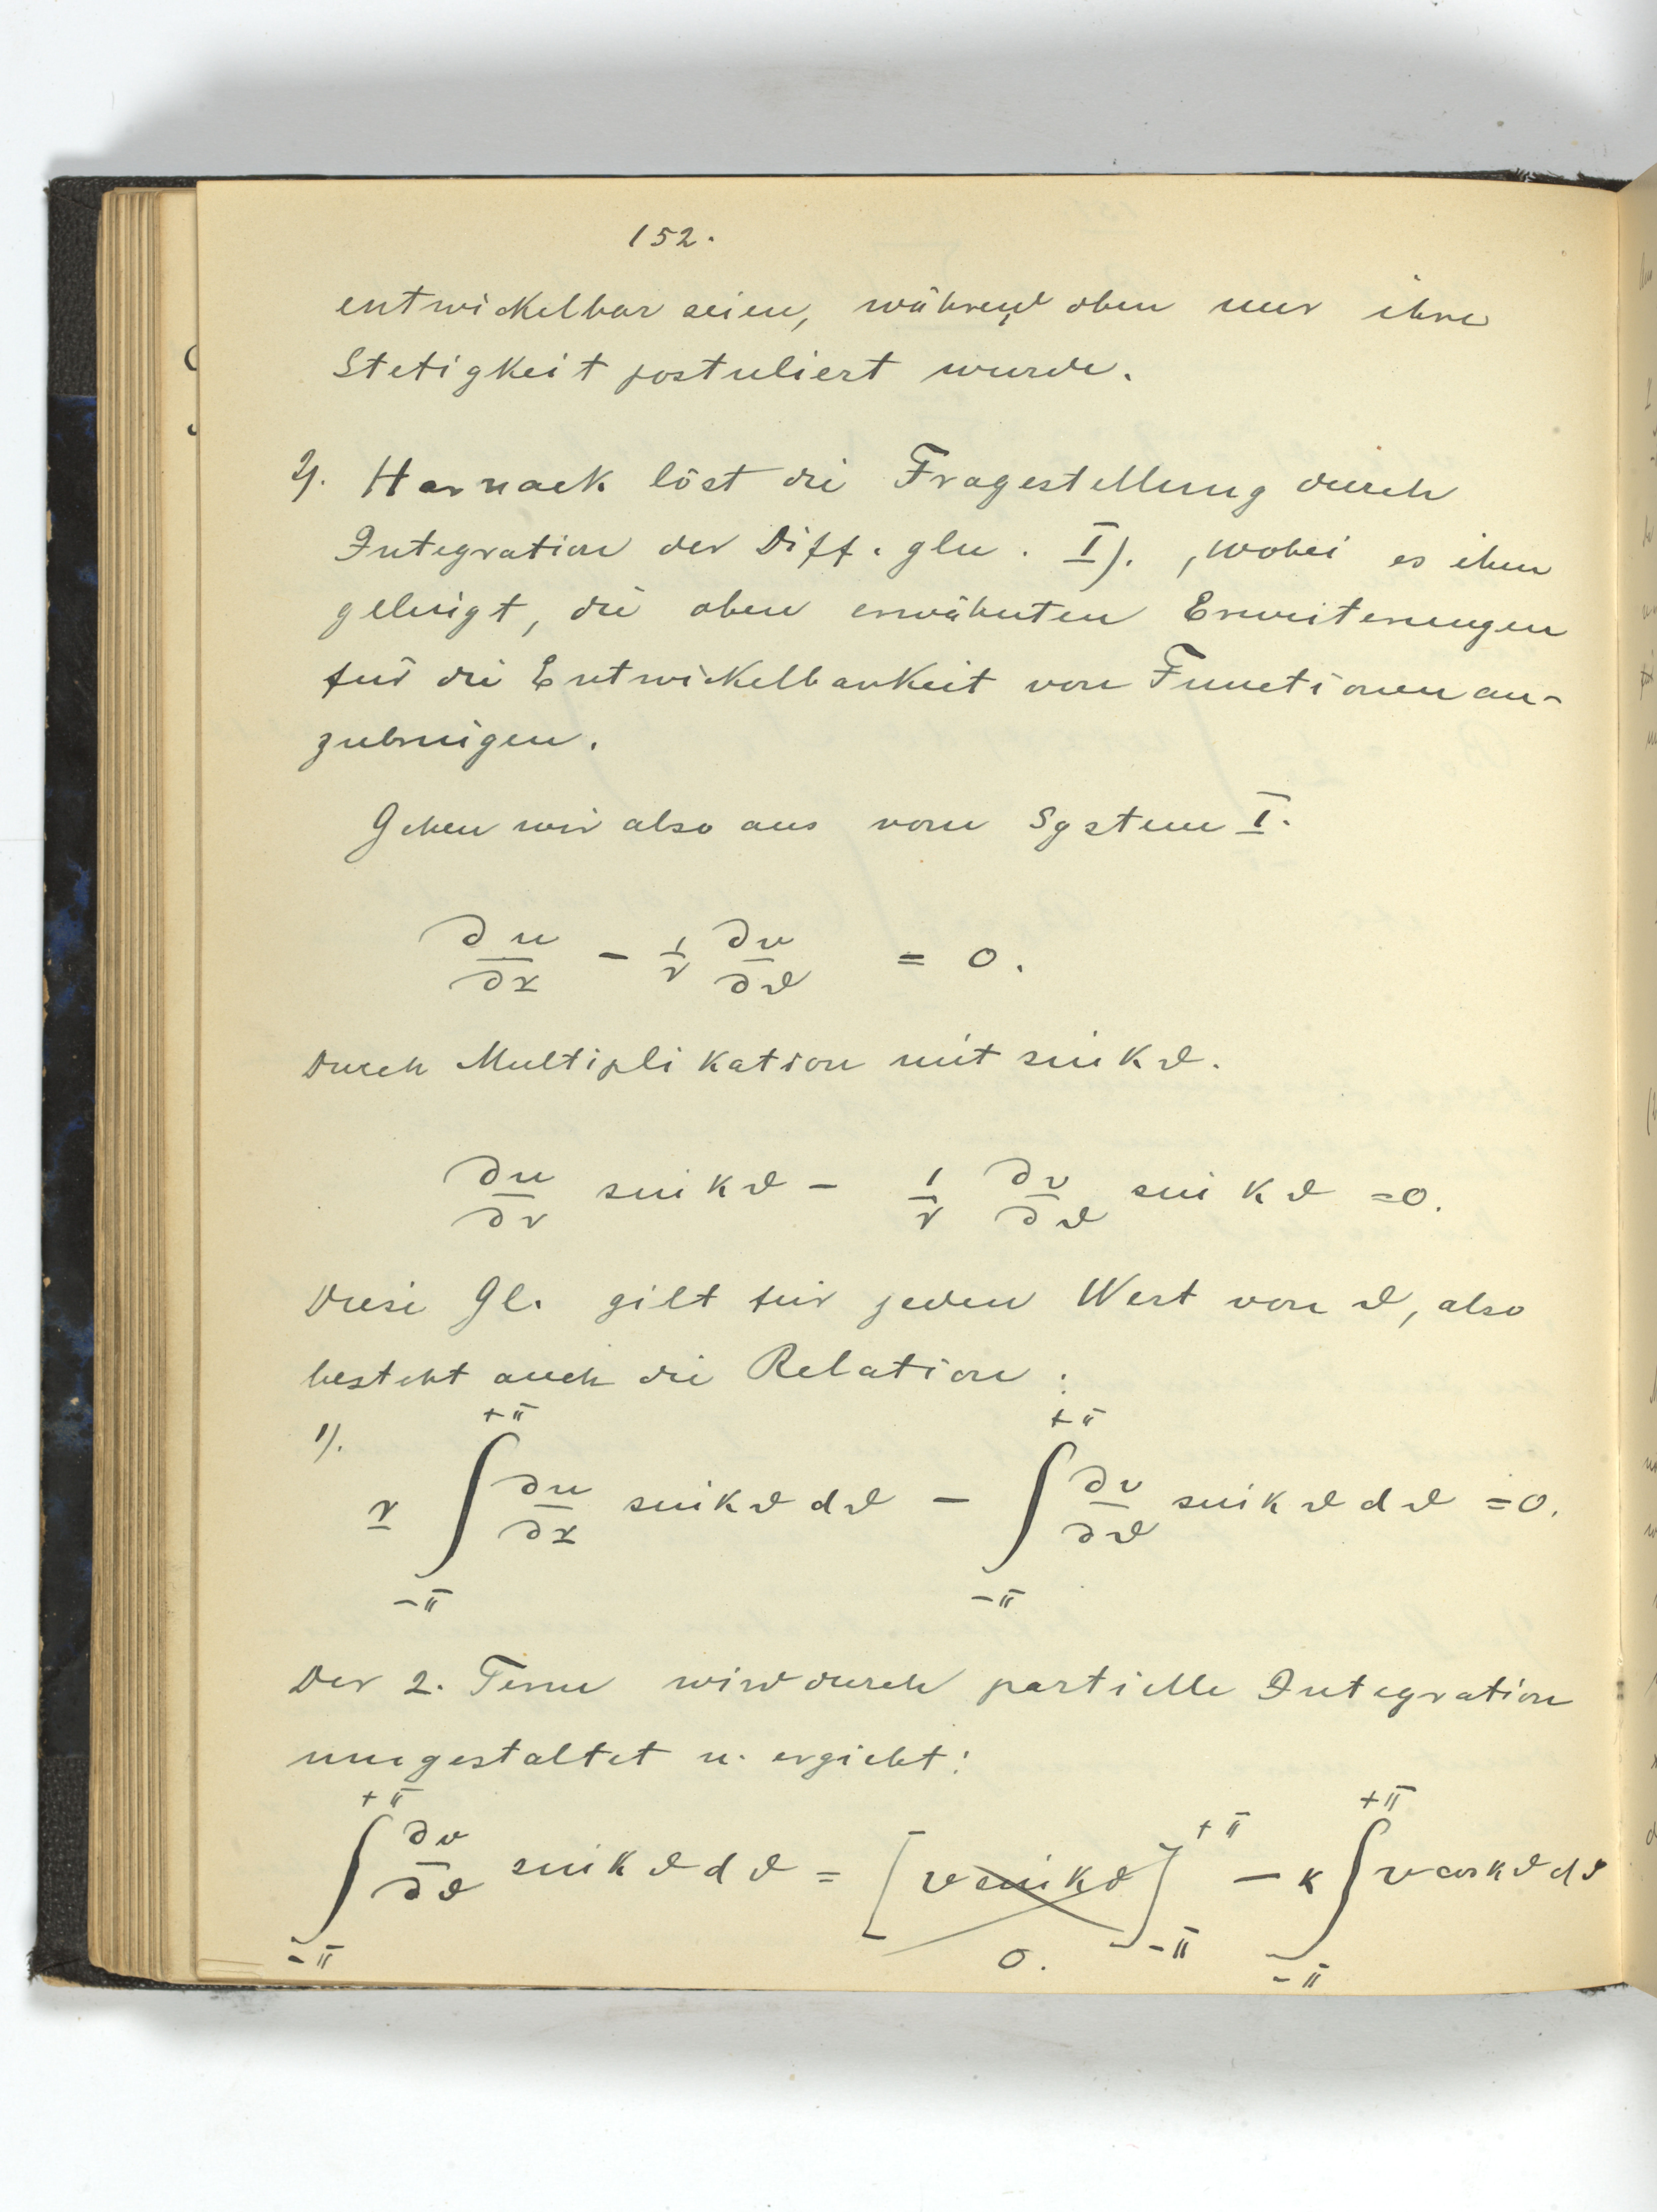 152.
entwickelbar seien, während oben nur ihre
Stetigkeit postuliert wurde.
2). Harnack löst die Fragestellung durch
Integration der Diff. gln. I)., wobei es ihm
gelingt, die oben erwähnten Erweiterungen
für die Entwickelbarkeit von Functionen an-
zubringen.
Gehen wir also aus vom System I.
∂u/∂r - 1/r ∂v/∂ϑ = 0.
Durch Multiplikation mit sin kϑ.
∂u/∂r sin kϑ - 1/r ∂v/∂ϑ sin kϑ = 0.
Diese Gl. gilt für jeden Wert von ϑ, also
besteht auch die Relation:
1). r ∫_{-π}^{+π} ∂u/∂r sin kϑ dϑ - ∫_{-π}^{+π} ∂v/∂ϑ sin kϑ dϑ = 0.
Der 2. Term wird durch partielle Integration
umgestaltet u. ergiebt:
∫_{-π}^{+π} ∂v/∂ϑ sin kϑ dϑ = [v sin kϑ]_{-π}^{+π} - k ∫_{-π}^{+π} v cos kϑ dϑ
0.